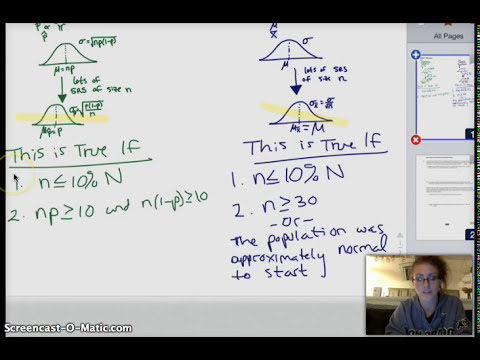 p or π
p̂
σ=√np(1-p)
μ=np
lots of
SRS of size n
σp̂=√p(1-p)/n
μp̂=p
This is True If
1. n≤10% N
2. np≥10 and n(1-p)≥10
μ
x̄
σ
μ
lots of
SRS of size n
σx̄=σ/√n
μx̄=μ
This is True If
1. n≤10% N
2. n≥30
-or-
The population was
approximately normal
to start
All Pages
1
2
Screencast-O-Matic.com